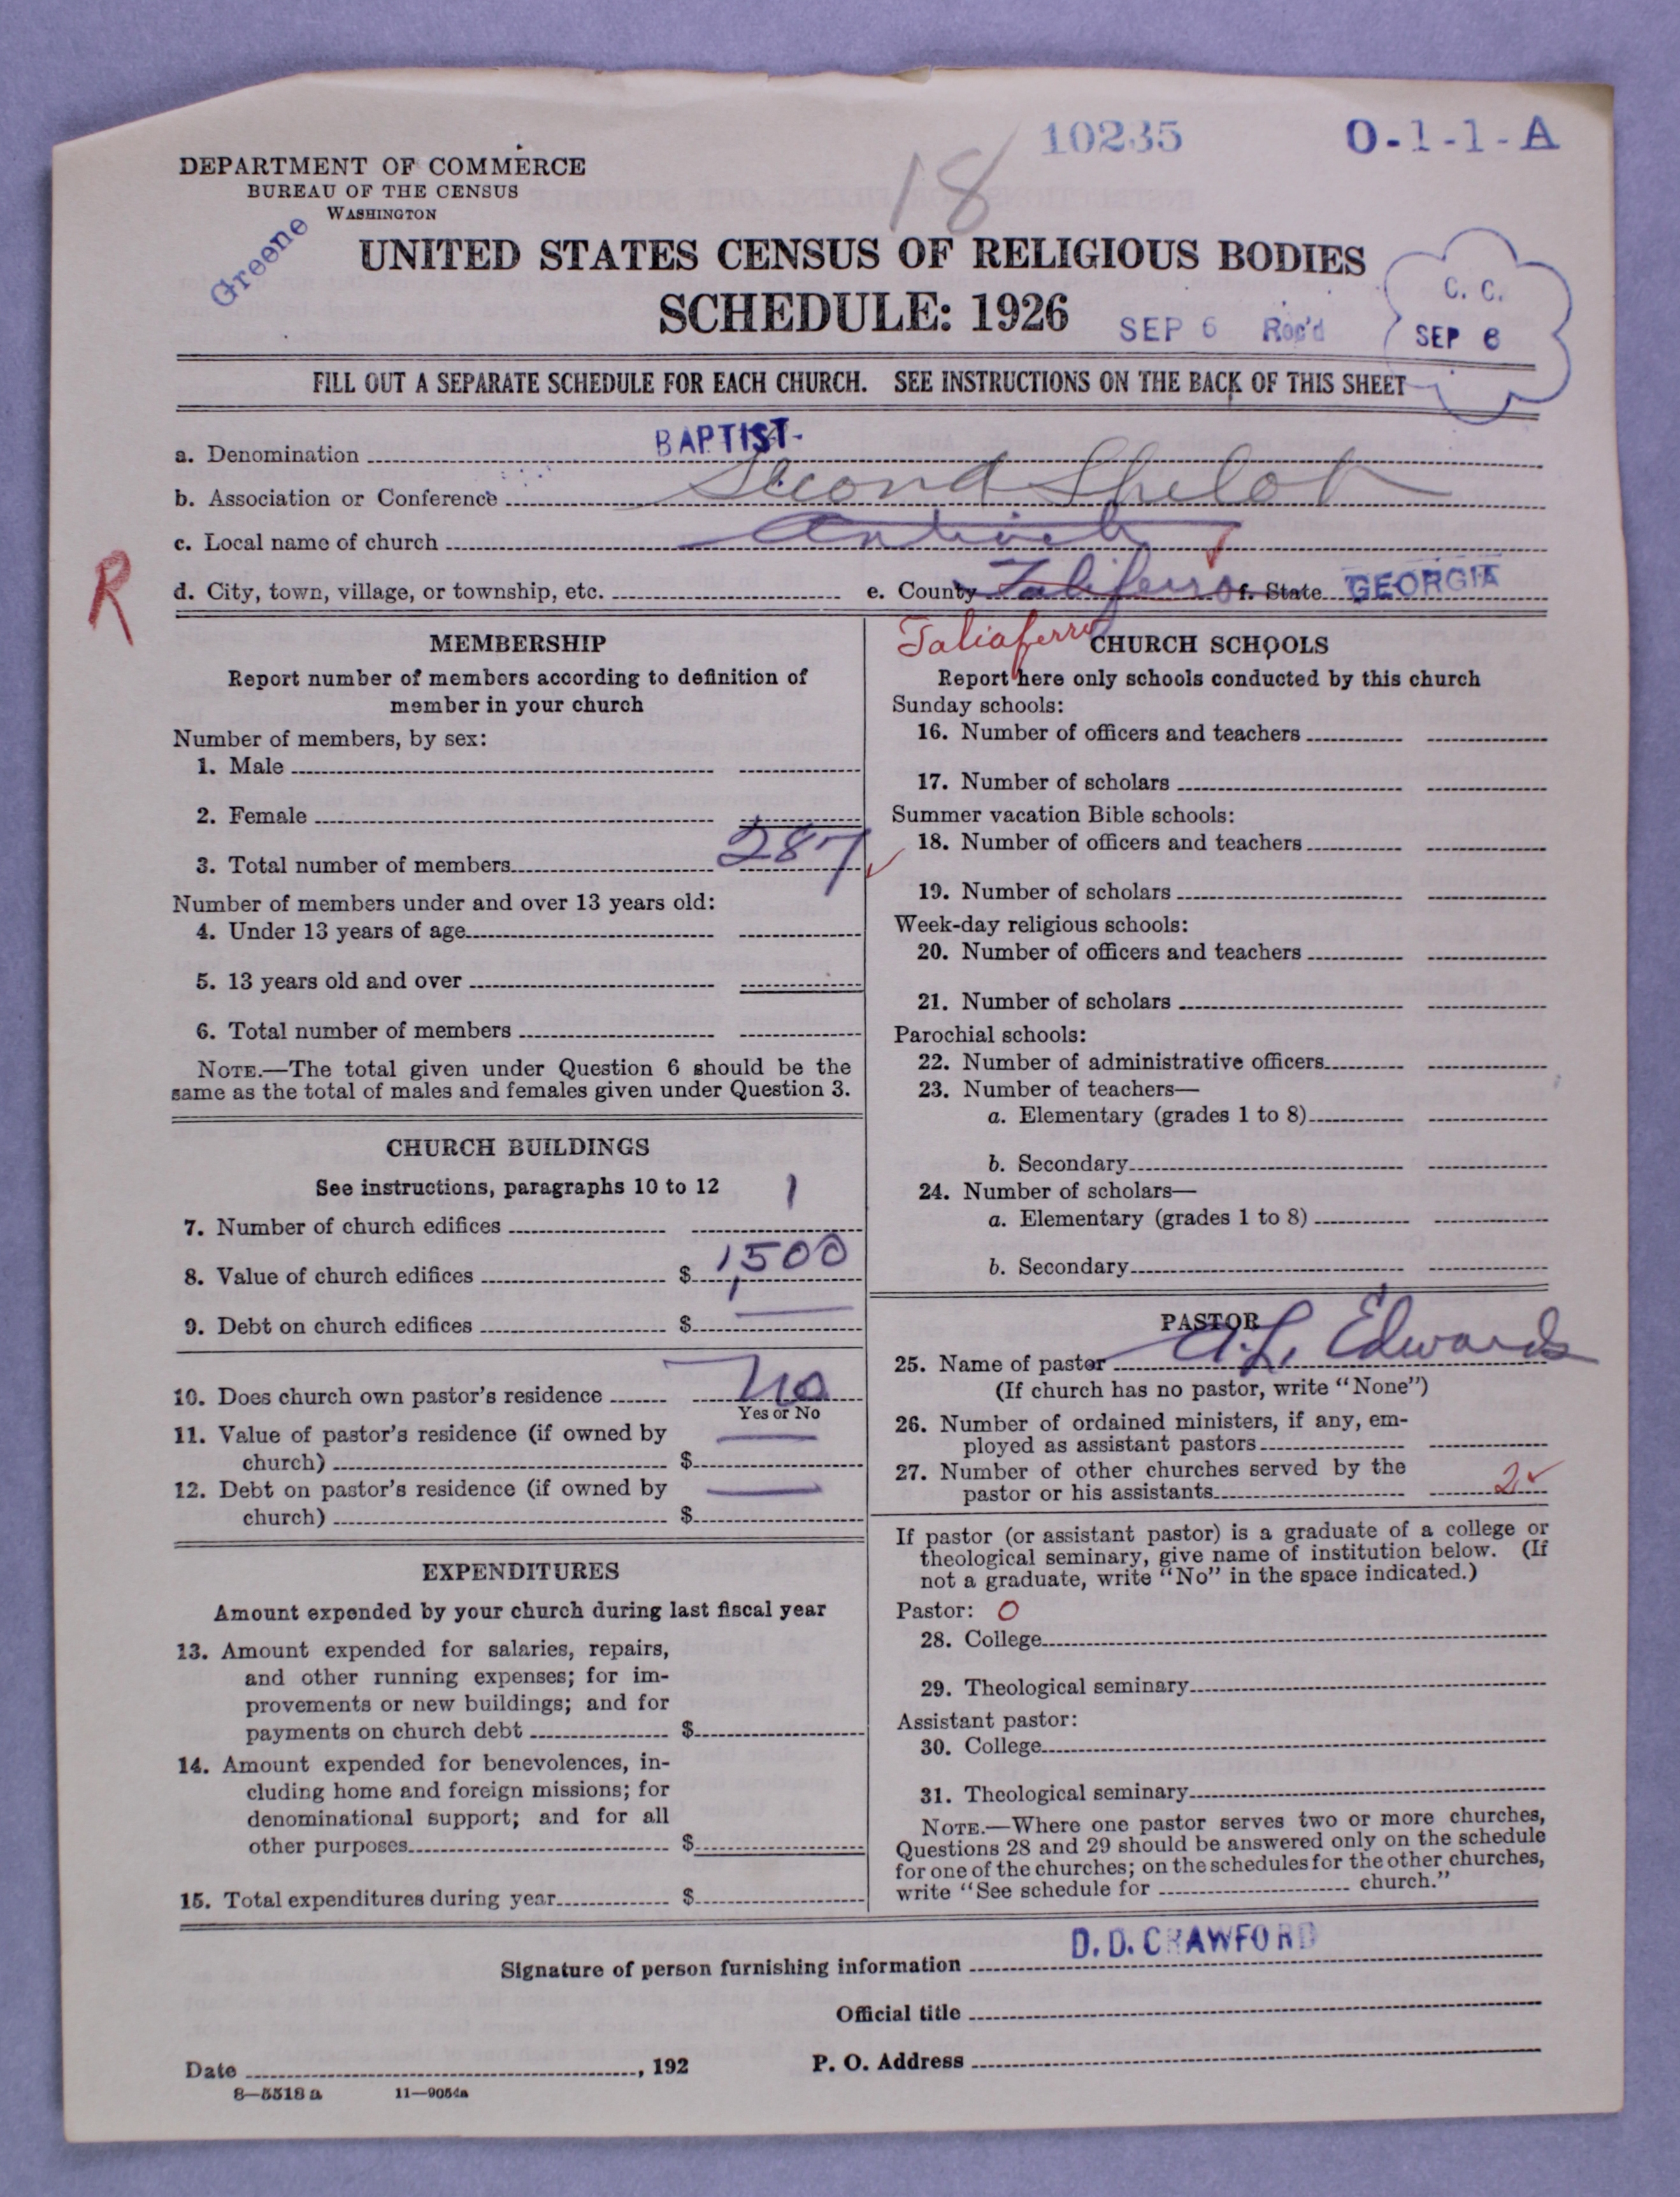 10235
0-1-1-A
18
DEPARTMENT OF COMMERCE
BUREAU OF THE CENSUS
WASHINGTON
Greene
UNITED STATES CENSUS OF RELIGIOUS BODIES
SCHEDULE: 1926
SEP 6 Rec'd
C. C.
SEP 6
FILL OUT A SEPARATE SCHEDULE FOR EACH CHURCH. SEE INSTRUCTIONS ON THE BACK OF THIS SHEET
a. Denomination BAPTIST-
b. Association or Conference Second Shiloh
c. Local name of church Antioch
R
d. City, town, village, or township, etc. e. County Taliferro f. State GEORGIA
Taliaferro
MEMBERSHIP
Report number of members according to definition of
member in your church
Number of members, by sex:
1. Male
2. Female
3. Total number of members 287
Number of members under and over 13 years old:
4. Under 13 years of age
5. 13 years old and over
6. Total number of members
NOTE.—The total given under Question 6 should be the
same as the total of males and females given under Question 3.
CHURCH BUILDINGS
See instructions, paragraphs 10 to 12
7. Number of church edifices 1
8. Value of church edifices $ 1,500
9. Debt on church edifices $ —
10. Does church own pastor's residence No
Yes or No
11. Value of pastor's residence (if owned by
church) $ —
12. Debt on pastor's residence (if owned by
church) $ —
EXPENDITURES
Amount expended by your church during last fiscal year
13. Amount expended for salaries, repairs,
and other running expenses; for im-
provements or new buildings; and for
payments on church debt $
14. Amount expended for benevolences, in-
cluding home and foreign missions; for
denominational support; and for all
other purposes $
15. Total expenditures during year $
CHURCH SCHOOLS
Report here only schools conducted by this church
Sunday schools:
16. Number of officers and teachers
17. Number of scholars
Summer vacation Bible schools:
18. Number of officers and teachers
19. Number of scholars
Week-day religious schools:
20. Number of officers and teachers
21. Number of scholars
Parochial schools:
22. Number of administrative officers
23. Number of teachers—
a. Elementary (grades 1 to 8)
b. Secondary
24. Number of scholars—
a. Elementary (grades 1 to 8)
b. Secondary
PASTOR
25. Name of pastor A. L. Edwards
(If church has no pastor, write "None")
26. Number of ordained ministers, if any, em-
ployed as assistant pastors
27. Number of other churches served by the
pastor or his assistants 2 ✓
If pastor (or assistant pastor) is a graduate of a college or
theological seminary, give name of institution below. (If
not a graduate, write "No" in the space indicated.)
Pastor: O
28. College
29. Theological seminary
Assistant pastor:
30. College
31. Theological seminary
NOTE.—Where one pastor serves two or more churches,
Questions 28 and 29 should be answered only on the schedule
for one of the churches; on the schedules for the other churches,
write "See schedule for church."
D. D. CRAWFORD
Signature of person furnishing information
Official title
Date , 192 P. O. Address
8—5518 a 11—9054a